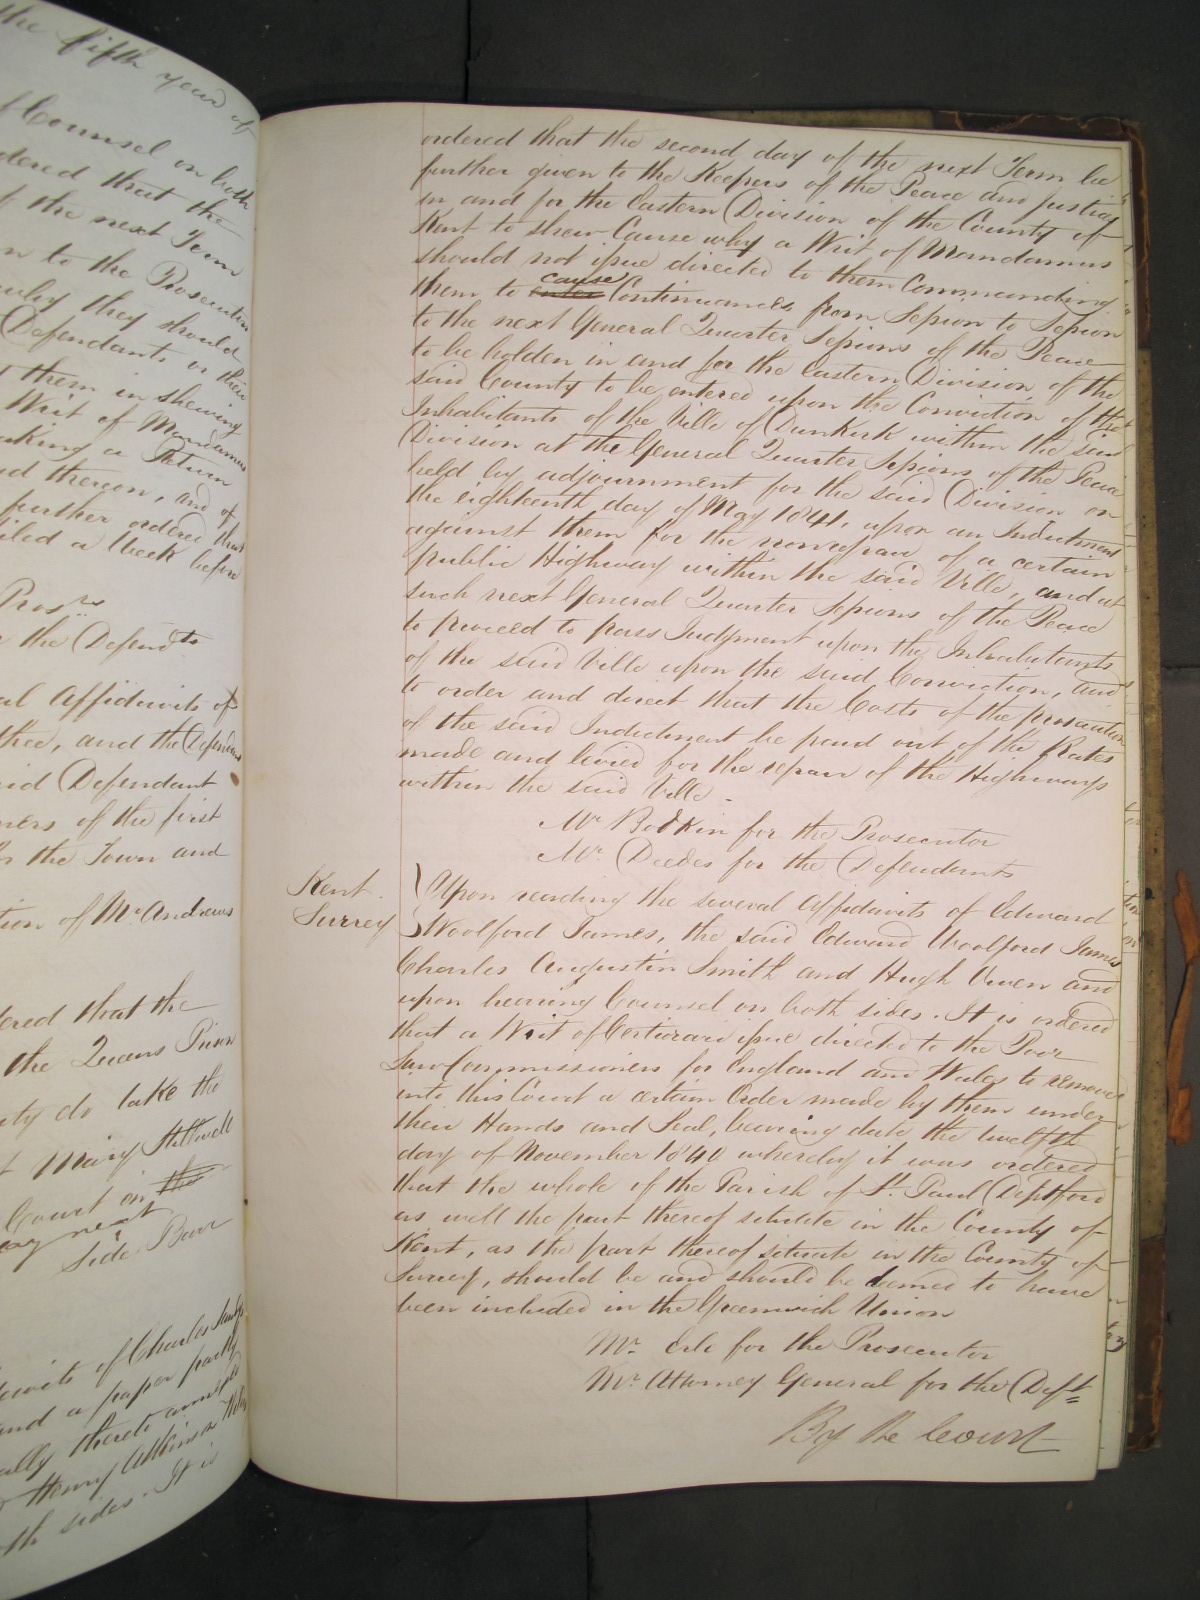 the fifth year of
f Counsel on both
dered that the
f the next Term
n to the Prosecution
why they should
Defendants or their
t them in shewing
Writ of Mandamus
aking a Return
nd thereon, and of
further ordered that
iled a Week before
Pros.rs
r the Defend.ts
al Affidavits of
thee, and the Defendant
id Defendant
ners of the first
the Town and
tion of Mr Andrews
dered that the
the Queens Prison
ty do take the
t Mary Stilwell
Court on the
ay next
Side Bar
davits of Charles
and a paper partly
ally thereto annexed
Henry Atkinson
th sides. It is
ordered that the second day of the next Term be
further given to the Keepers of the Peace and Justices
in and for the Eastern Division of the County of
Kent to shew Cause why a Writ of Mandamus
should not issue directed to them Commanding
them to enter cause Continuances from Session to Session
to the next General Quarter Sessions of the Peace
to be holden in and for the Eastern Division of the
said County to be entered upon the Conviction of the
Inhabitants of the Ville of Dunkirk within the said
Division at the General Quarter Sessions of the Peace
held by adjournment for the said Division on
the eighteenth day of May 1841, upon an Indictment
against them for the nonrepair of a certain
public Highway within the said Ville, and at
such next General Quarter Sessions of the Peace
to proceed to pass Judgment upon the Inhabitants
of the said Ville upon the said Conviction, and
to order and direct that the Costs of the prosecution
of the said Indictment be paid out of the Rates
made and levied for the repair of the Highways
within the said Ville.
Mr Bodkin for the Prosecutor
Mr Deedes for the Defendants
Kent.
Surrey
Upon reading the several Affidavits of Edward
Woolford James, the said Edward Woolford James
Charles Augustin Smith and Hugh Owen and
upon hearing Counsel on both sides. It is ordered
that a Writ of Certiorari issue directed to the Poor
Law Commissioners for England and Wales to remove
into this Court a certain Order made by them under
their Hands and Seal, bearing date the twelfth
day of November 1840 whereby it was ordered
that the whole of the Parish of St. Paul Deptford
as well the part thereof situate in the County of
Kent, as the part thereof situate in the County of
Surrey, should be and should be deemed to have
been included in the Greenwich Union
Mr. Erle for the Prosecutor
Mr. Attorney General for the Deft.
By the Court